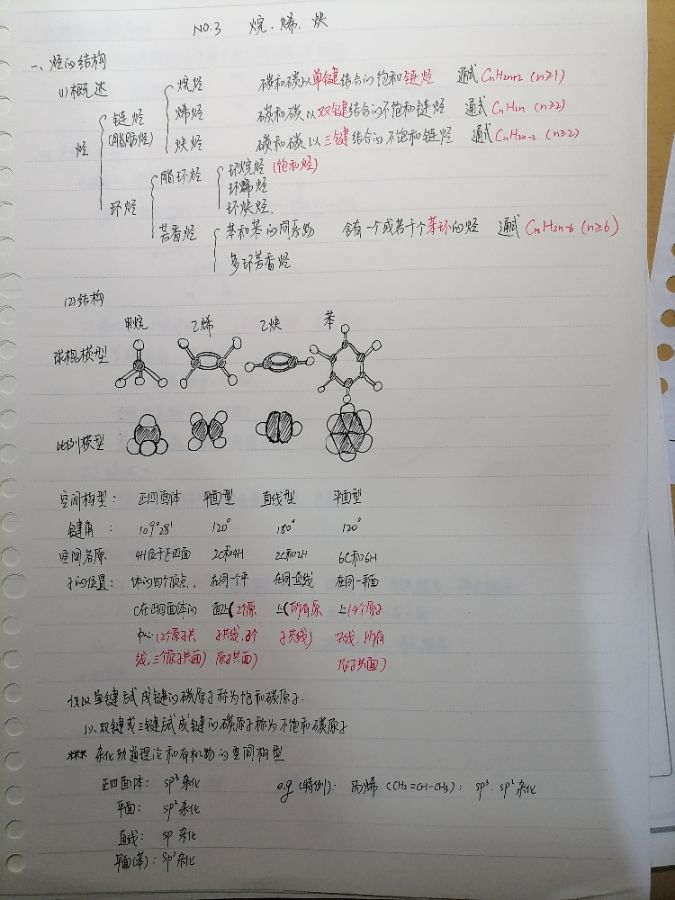 NO.3 烷、烯、炔
一、烃的结构
(1) 概述
烃
链烃 (脂肪烃)
烷烃 碳和碳以单键结合的饱和链烃 通式 CnH2n+2 (n≥1)
烯烃 碳和碳以双键结合的不饱和链烃 通式 CnH2n (n≥2)
炔烃 碳和碳以三键结合的不饱和链烃 通式 CnH2n-2 (n≥2)
环烃
脂环烃
环烷烃 (饱和烃)
环烯烃
环炔烃.
芳香烃
苯和苯的同系物 含有一个或若干个苯环的烃 通式 CnH2n-6 (n≥6)
多环芳香烃
(2) 结构
甲烷 乙烯 乙炔 苯
球棍模型
比例模型
空间构型: 正四面体 平面型 直线型 平面型
键角: 109°28' 120° 180° 120°
空间各原 4H位于正四面 2C和4H 2C和2H 6C和6H
子的位置: 体的四个顶点, 在同一个平 在同一直线 在同一平面
C在正四面体的 面上(2个原 上(所有原 上(4个原子
中心(2个原子共 子共线, 子共线) 共线、所有
线,三个原子共面) 原子共面) 原子共面)
仅以单键方式成键的碳原子称为饱和碳原子.
以双键或三键方式成键的碳原子称为不饱和碳原子
*** 杂化轨道理论和有机物的空间构型
正四面体: sp³杂化 e.g (特例): 丙烯 (CH2=CH-CH3): sp³、sp²杂化
平面: sp²杂化
直线: sp 杂化
平面(苯): sp²杂化